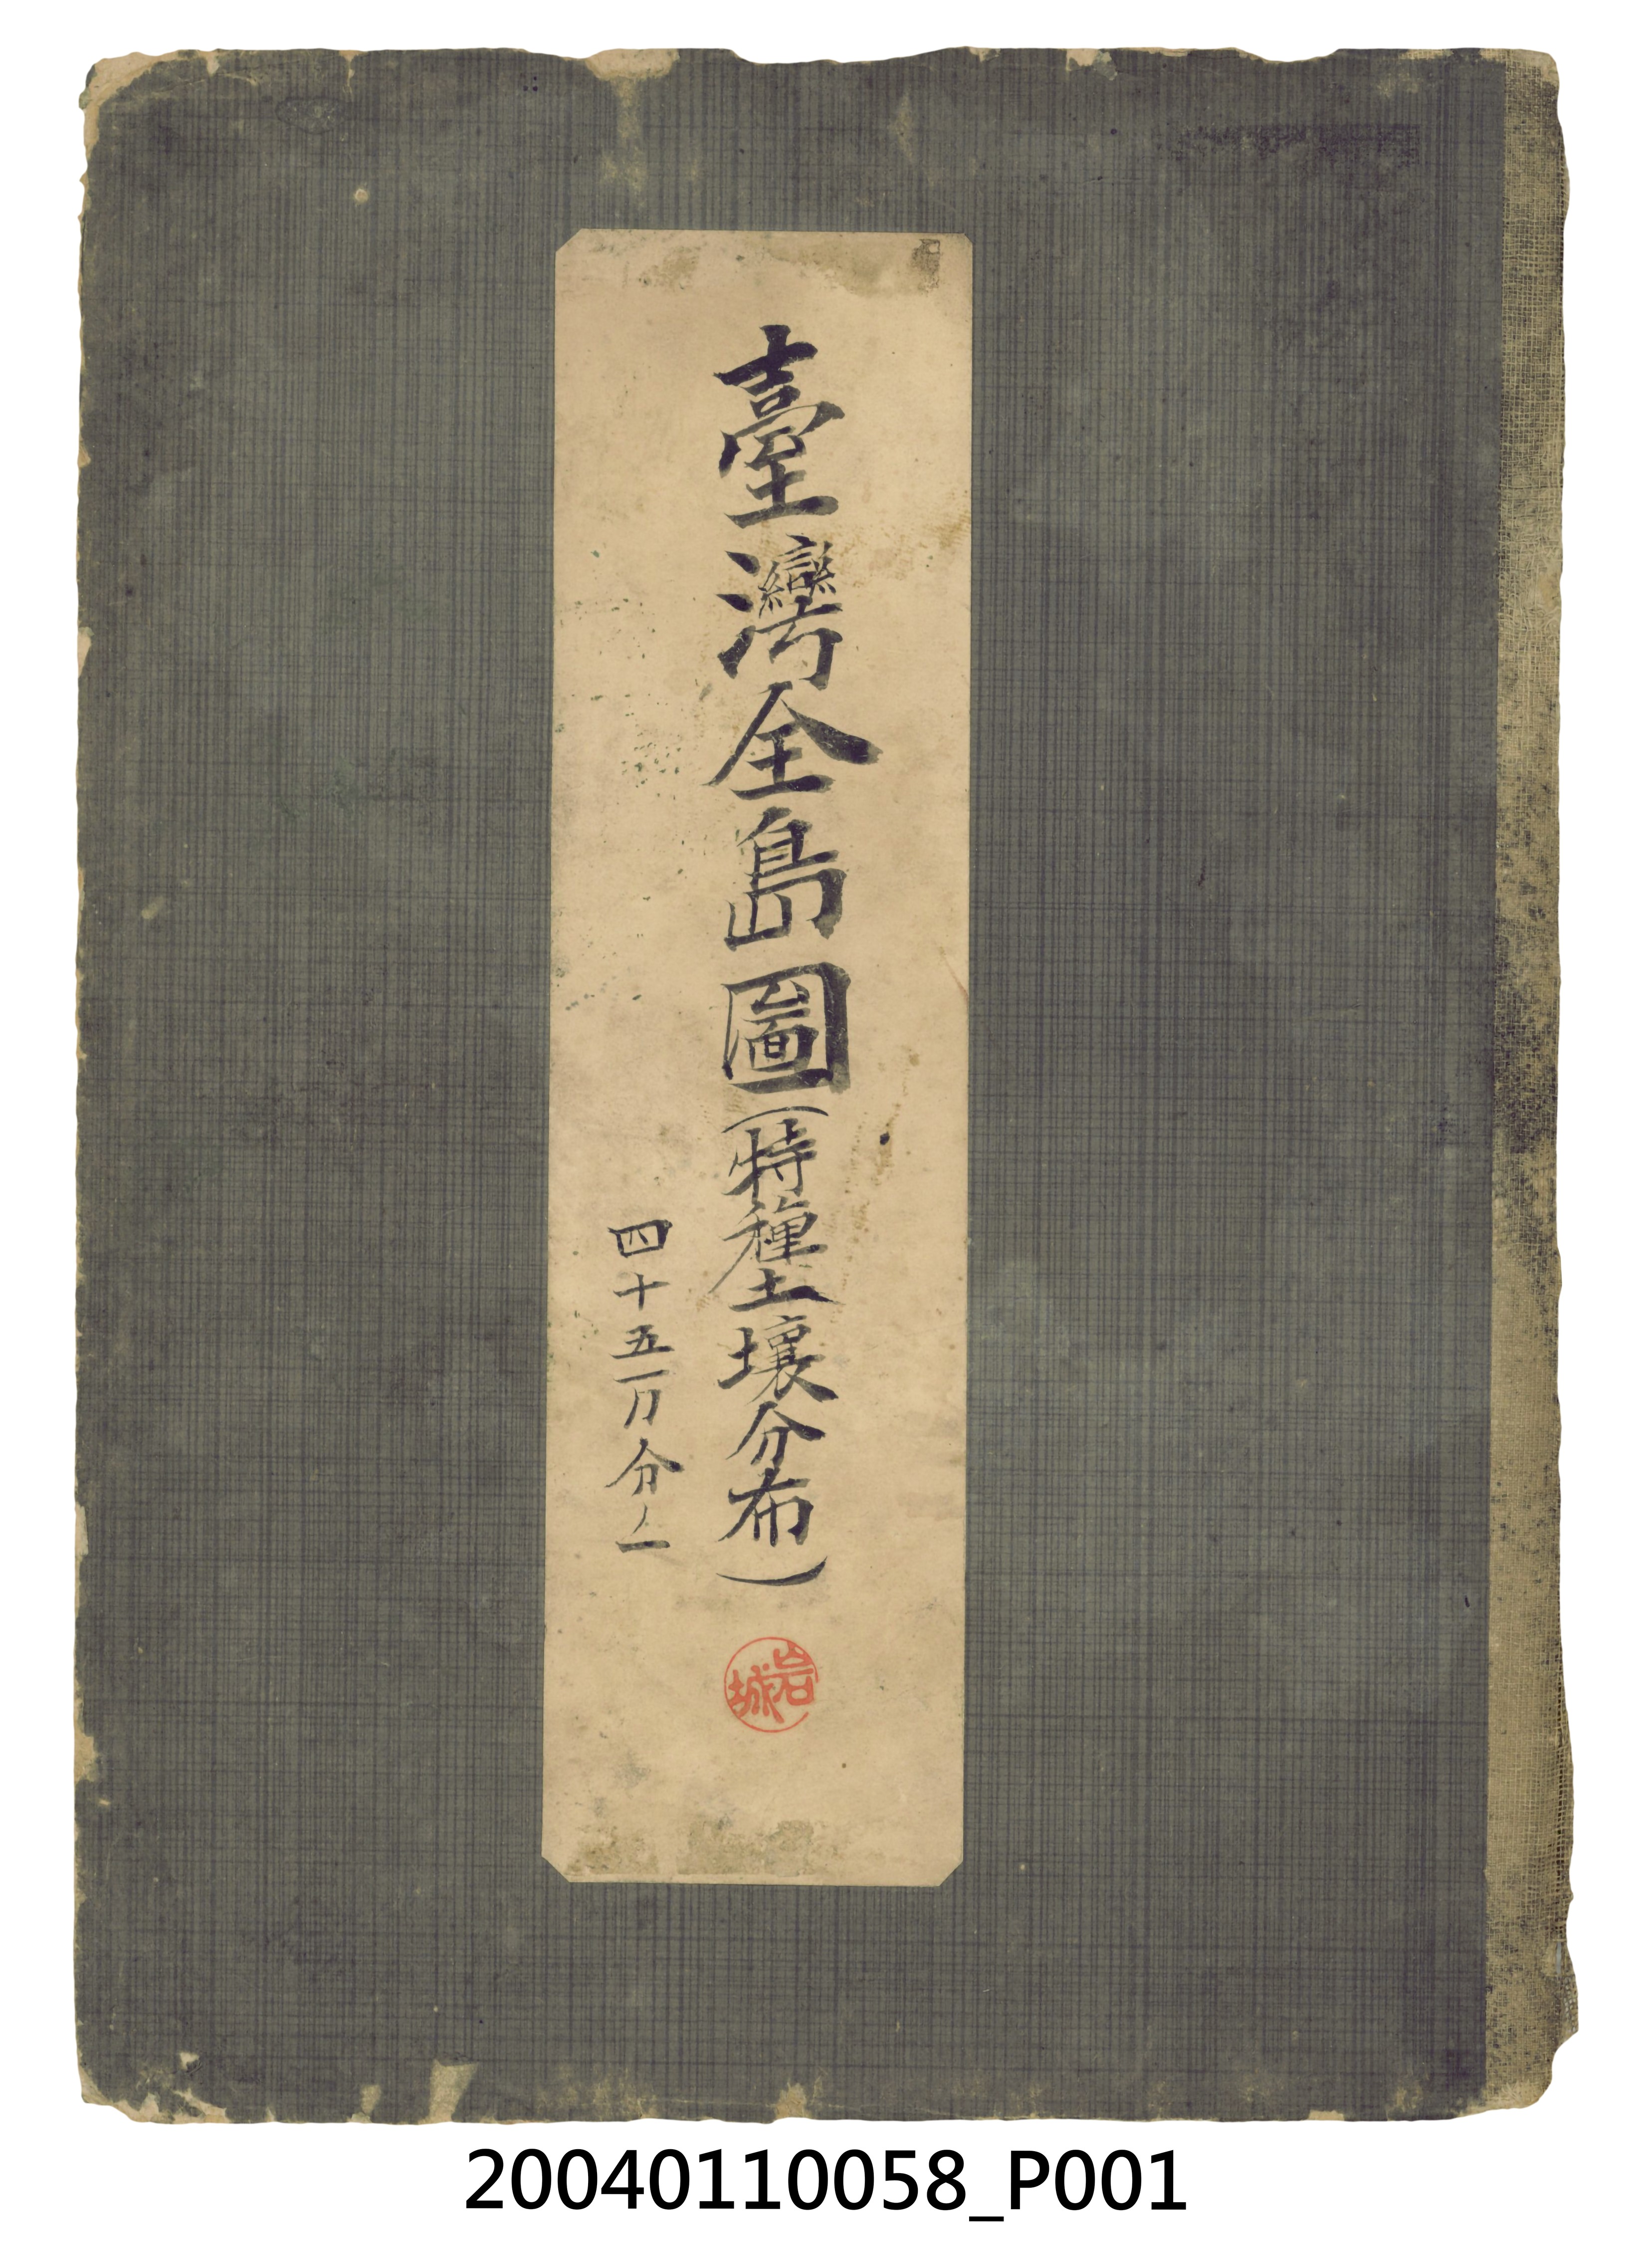 臺灣全島圖(特種土壤分布)
四十五万分之一
岩城
20040110058_P001